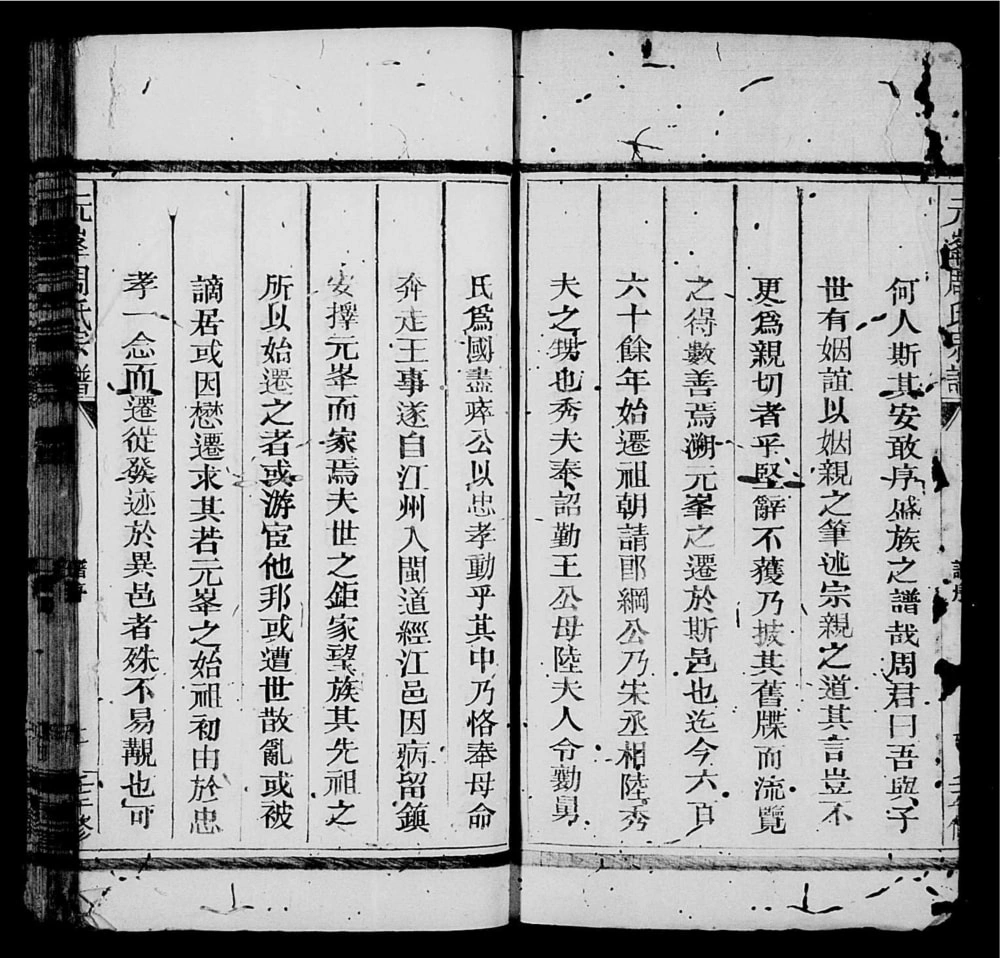 元峯周氏宗譜
何人斯其安敢序盛族之譜哉周君曰吾與子
世有姻誼以姻親之筆述宗親之道其言豈不
更爲親切者乎堅辭不獲乃披其舊牒而流覽
之得數善焉溯元峯之遷於斯邑也迄今六百
六十餘年始遷祖朝請郎綱公乃宋丞相陸秀
夫之甥也秀夫奉詔勤王公母陸夫人令勷舅
氏爲國盡瘁公以忠孝動乎其中乃恪奉母命
奔走王事遂自江州入閩道經江邑因病留鎮
安擇元峯而家焉夫世之鉅家望族其先祖之
所以始遷之者或游宦他邦或遭世散亂或被
謫居或因懋遷求其若元峯之始祖初由於忠
孝一念而遷從發迹於異邑者殊不易覯也可
元峯周氏宗譜
譜序